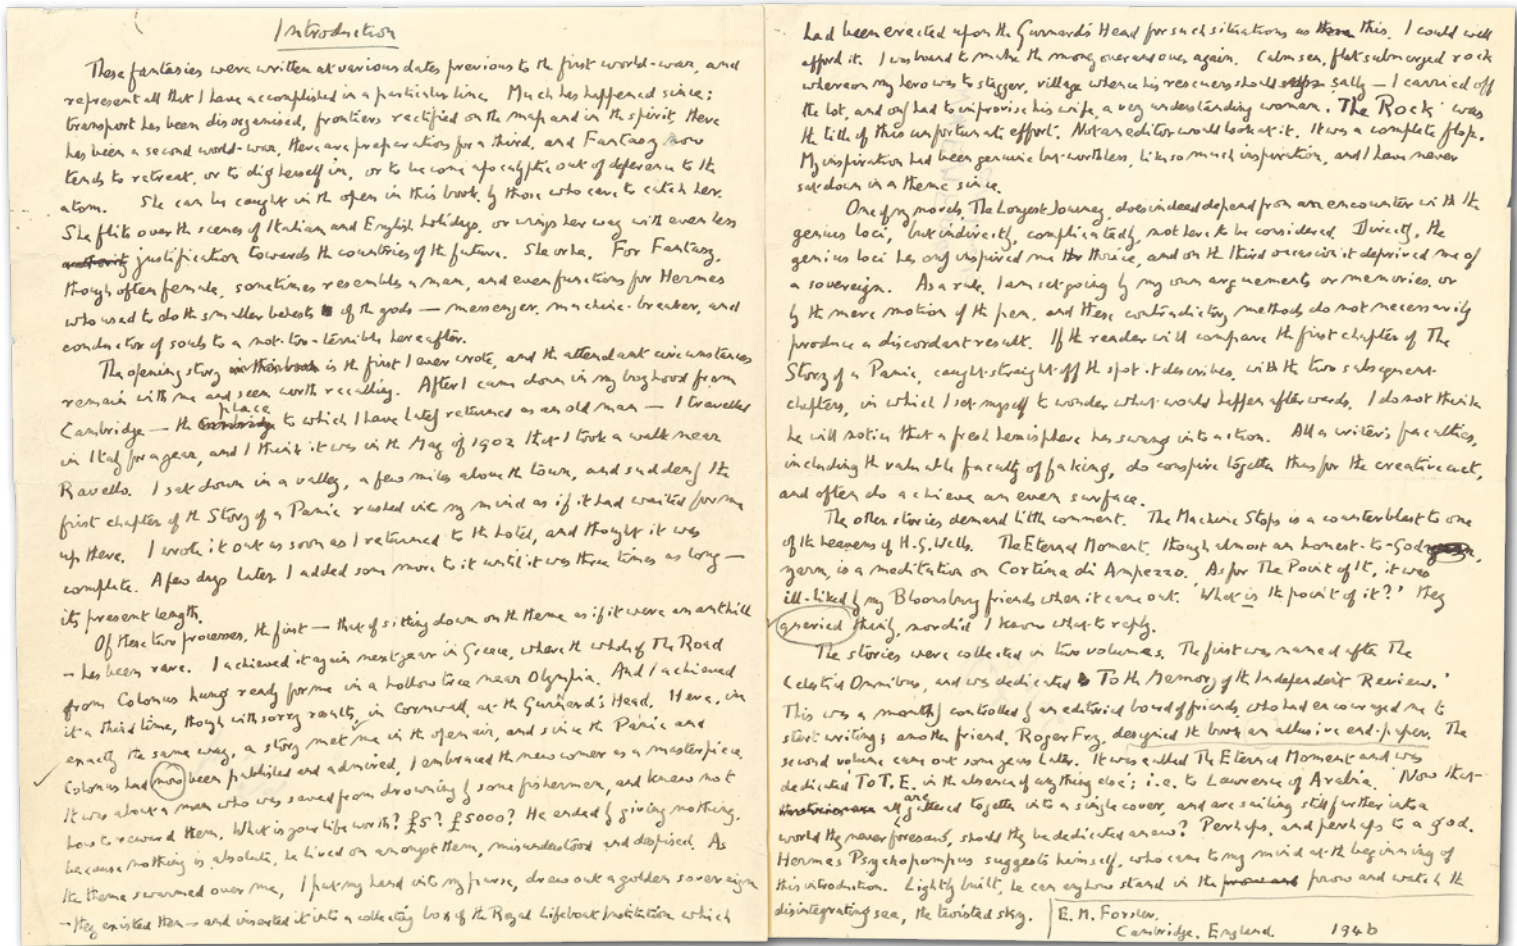 Introduction
These fantasies were written at various dates previous to the first world-war, and
represent all that I have accomplished in a particular line. Much has happened since;
transport has been disorganised, frontiers rectified on the map and in the spirit, there
has been a second world-war, there are preparations for a third, and Fantasy now
tends to retreat, or to dig herself in, or to become apocalyptic out of deference to the
atom. She can be caught in the open in this book by those who care to catch her.
She flits over the scenes of Italian and English holidays, or wings her way with even less
justification towards the countries of the future. She or he. For Fantasy,
though often female, sometimes resembles a man, and even functions for Hermes
who used to do the smaller behests of the gods — messenger, machine-breaker, and
conductor of souls to a not-too-terrible hereafter.
The opening story in this book is the first I ever wrote, and the attendant circumstances
remain with me and seem worth recalling. After I came down in my boyhood from
Cambridge — the place to which I have lately returned as an old man — I travelled
in Italy for a year, and I think it was in the May of 1902 that I took a walk near
Ravello. I sat down in a valley, a few miles above the town, and suddenly the
first chapter of the Story of a Panic rushed into my mind as if it had waited for me
up there. I wrote it out as soon as I returned to the hotel, and thought it was
complete. A few days later I added some more to it until it was three times as long —
its present length.
Of these two processes, the first — that of sitting down on the theme as if it were an anthill
— has been rare. I achieved it again next year in Greece, where the whole of The Road
from Colonus hung ready for me in a hollow tree near Olympia. And I achieved
it a third time, though with sorry results, in Cornwall, at the Gurnard's Head. Here, in
exactly the same way, a story met me in the open air, and since the Panic and
Colonus had now been published and admired, I embraced the newcomer as a masterpiece.
It was about a man who was saved from drowning by some fishermen, and knew not
how to reward them. What is your life worth? £5? £5000? He ended by giving nothing,
because nothing is absolute, he lived on amongst them, misunderstood and despised. As
the theme swarmed over me, I put my hand into my purse, drew out a golden sovereign
— they existed then — and inserted it into a collecting box of the Royal Lifeboat Institution which
had been erected upon the Gurnard's Head for such situations as this. I could well
afford it. I was bound to make the money over and over again. Calm sea, flat submerged rock
whereon my hero was to stagger, village whence his rescuers should sally — I carried off
the lot, and only had to improvise his wife, a very understanding woman. 'The Rock' was
the title of this unfortunate effort. Not an editor would look at it. It was a complete flop.
My inspiration had been genuine but worthless, like so much inspiration, and I have never
sat down in a theme since.
One of my novels, The Longest Journey, does indeed depend from an encounter with the
genius loci, but indirectly, complicatedly, not here to be considered. Directly, the
genius loci has only inspired me thrice, and on the third occasion it deprived me of
a sovereign. As a rule, I am set going by my own arguements or memories, or
by the mere motion of the pen, and these contradictory methods do not necessarily
produce a discordant result. If the reader will compare the first chapter of The
Story of a Panic, caught straight off the spot it describes, with the two subsequent
chapters, in which I set myself to wonder what would happen afterwards, I do not think
he will notice that a fresh hemisphere has swung into action. All a writer's faculties,
including the valuable faculty of faking, do conspire together thus for the creative act,
and often do achieve an even surface.
The other stories demand little comment. The Machine Stops is a counterblast to one
of the heavens of H.G. Wells. The Eternal Moment, though almost an honest-to-God
yarn, is a meditation on Cortina di Ampezzo. As for The Point of It, it was
ill-liked by my Bloomsbury friends when it came out. 'What is the point of it?' they
queried thinly, nor did I know what to reply.
The stories were collected in two volumes. The first was named after The
Celestial Omnibus, and was dedicated 'To the Memory of the Independent Review.'
This was a monthly controlled by an editorial board of friends, who had encouraged me to
start writing; another friend, Roger Fry, designed the book an allusive end-paper. The
second volume came out some years later. It was called The Eternal Moment and was
dedicated 'To T.E. in the absence of anything else'; i.e. to Lawrence of Arabia. Now that
all are gathered together into a single cover, and are sailing still further into a
world they never foresaw, should they be dedicated anew? Perhaps, and perhaps to a god.
Hermes Psychopompus suggests himself, who came to my mind at the beginning of
this introduction. Lightly built, he can anyhow stand in the prow and watch the
disintegrating sea, the twisted sky.
E. M. Forster.
Cambridge. England. 1946